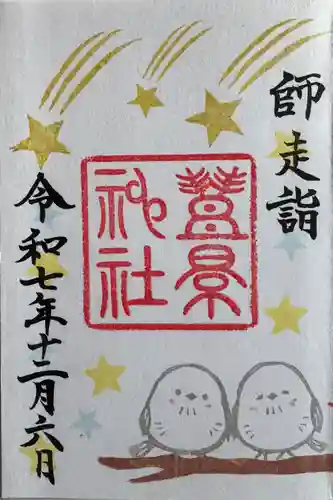 師走詣
景
神社
令和七年十二月六日